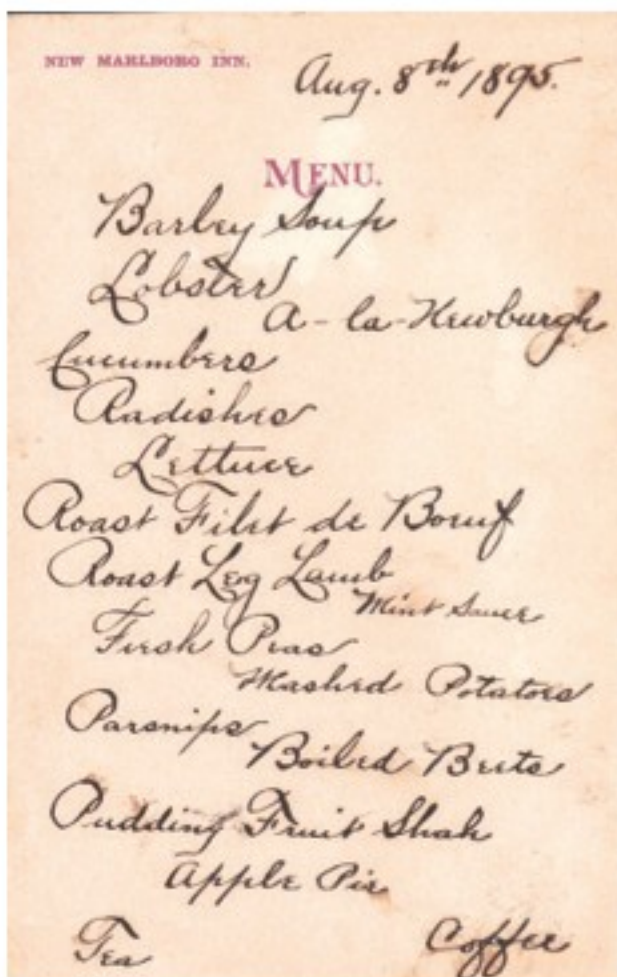 NEW MARLBORO INN.
Aug. 8th 1895.
MENU.
Barley Soup
Lobster
A-la-Newburgh
Cucumbers
Radishes
Lettuce
Roast Filet de Boeuf
Roast Leg Lamb
Mint Sauce
Fresh Peas
Mashed Potatoes
Parsnips
Boiled Beets
Pudding Fruit Shah
Apple Pie
Tea
Coffee